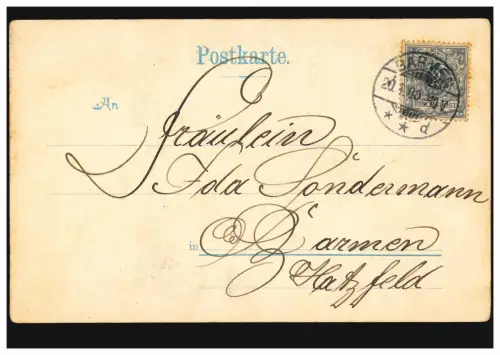 Postkarte.
An
Fräulein
Ida Sondermann
in Barmen
Hatzfeld